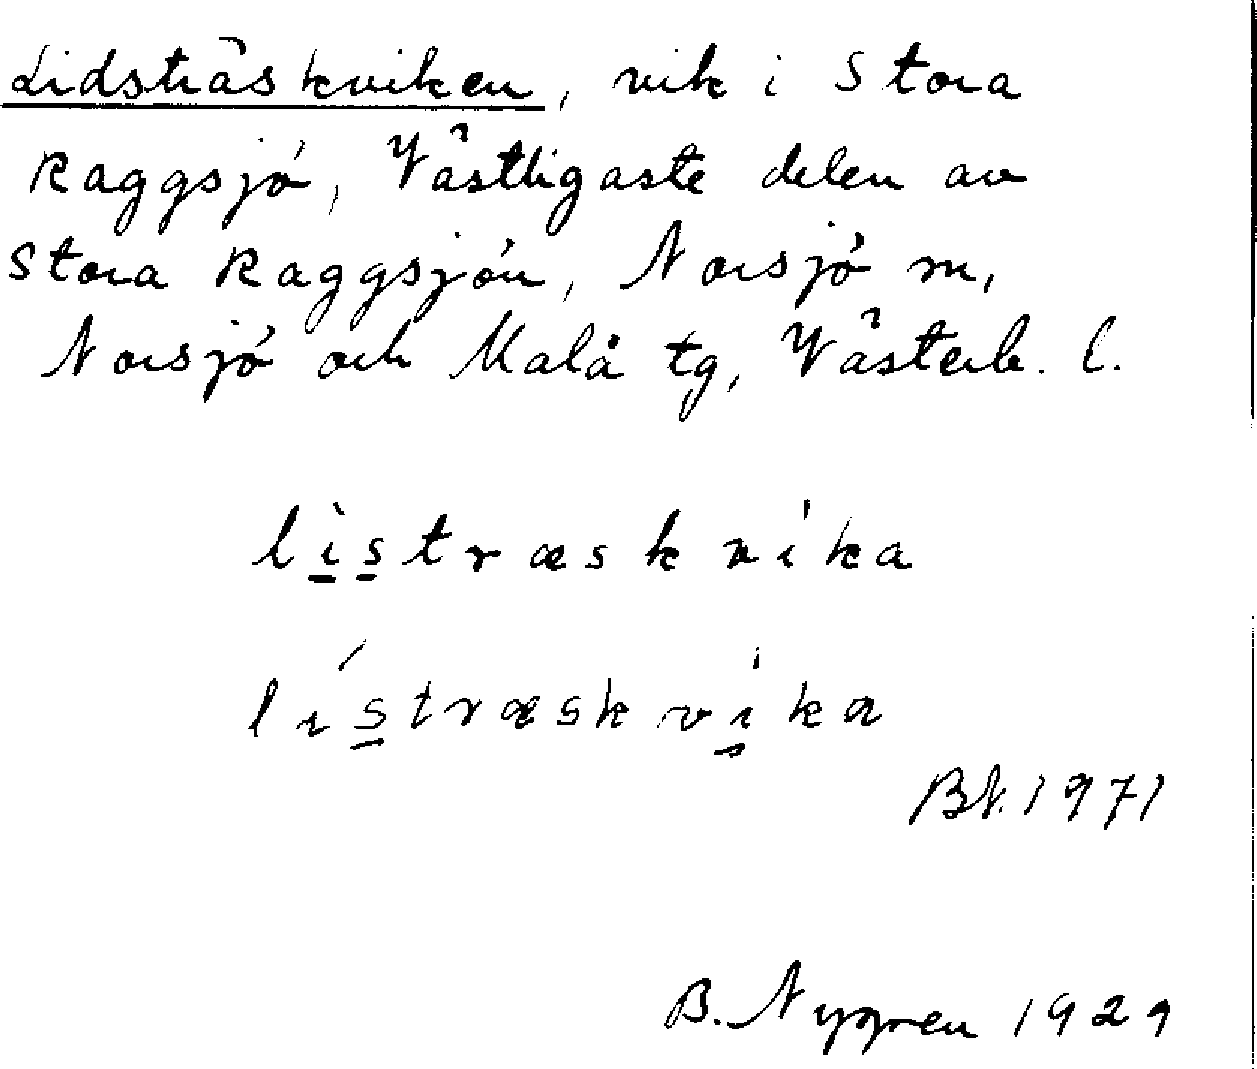 Lidsträskviken, vik i Stora
Raggsjö, Västligaste delen av
Stora Raggsjön, Norsjö m,
Norsjö och Malå tg, Västerb. l.
lìstræskvíka
lístræskvíka
BN. 1971
B. Nygren 1929